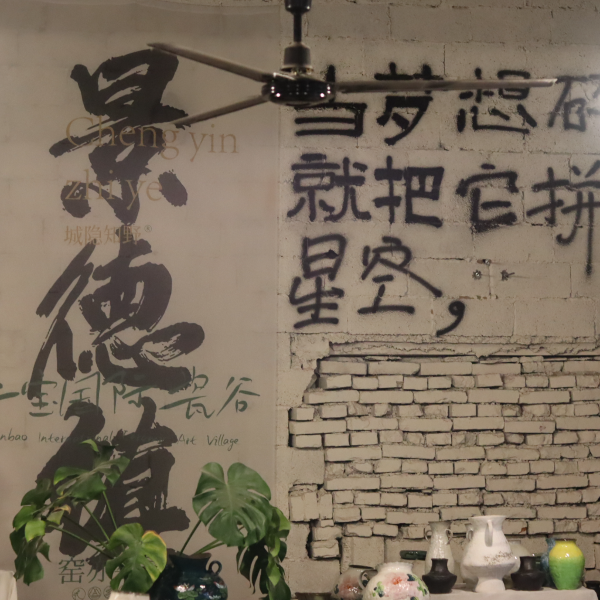 景德镇
Cheng yin
zhi ye
城隐知野®
宝国际瓷谷
nbao Inter Art Village
窑
当梦想
就把它拼
星空，